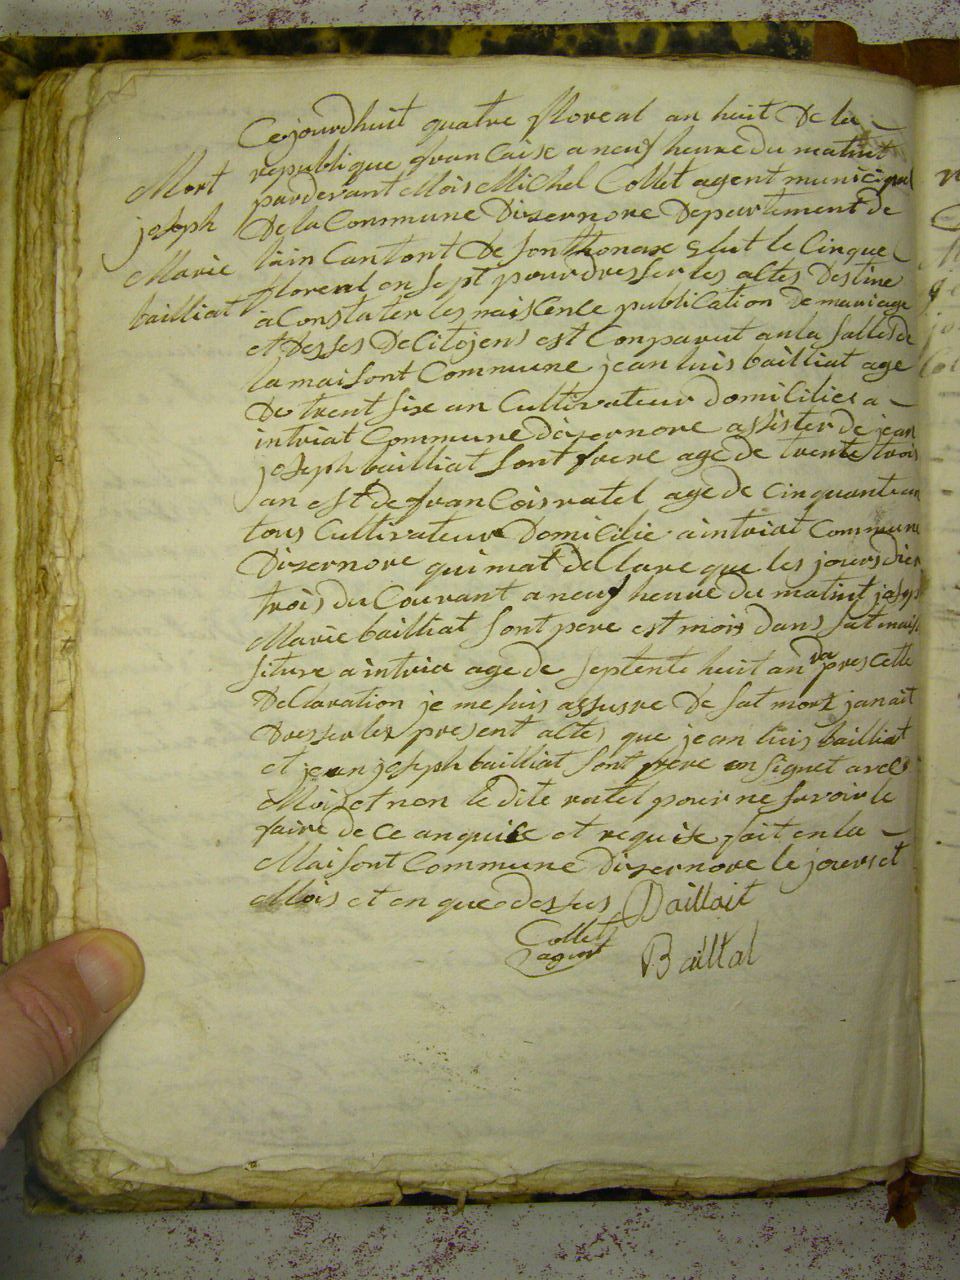 Mort
joseph
Marie
bailliat
Cejourdhuit quatre floreal an huit De la
republique francaise a neuf heure du matint
pardevant Mois Michel Collet agent municipal
De la Commune Dizernore Departement de
lain Cantont De sonthonax Elut le Cinque
floreal en sept pour dresser les altes Destine
a Constater les naiscence publication De mariage
et Desses De Citojens est Conparut an la salle De
la maisont Commune jean luis bailliat age
De trent six an Cultivateur Domicilies a
intriat Commune dizernore assister de jean
joseph bailliat sont frere age de trente trois
an est de francois ratel age de cinquante un
tous Cultivateur Domicilie a intriat Commune
Dizernore qui mat declare que les jours dier
trois du Courant a neuf heure du matint joseph
Marie bailliat sont pere est mois dans sat mais
siture a intria age de septente huit an dapres cette
Declaration je me suis assusre De sat mort janait
Dresser les present altes que jean luis bailliat
et jean joseph bailliat sont frere on signet avec
Moi et non le dite ratel pour ne savoir le
faire de ce anquise et requise fait en la
Maisont Commune Dizernore le jours et
Mois et en que dessus Baillait
Collet
agent
Baillal